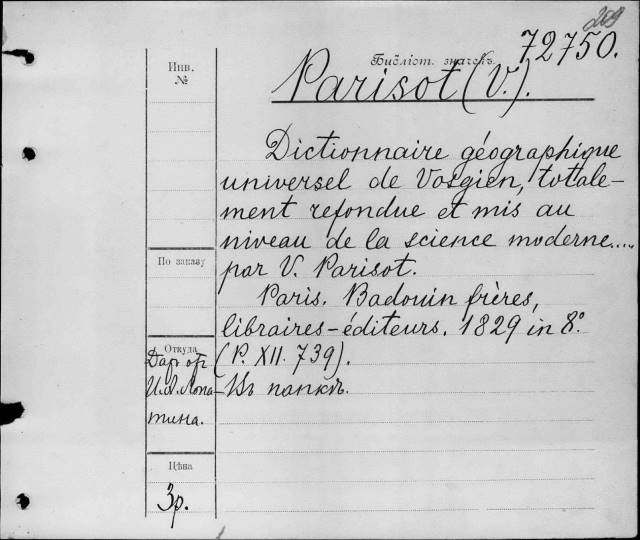 209
72750.
Библіот. значекъ.
Parisot (V.).
Инв.
№
Dictionnaire géographique
universel de Vosgien, totale-
ment refondue et mis au
niveau de la science moderne....
par V. Parisot.
Paris. Badouin frères,
libraires-éditeurs. 1829 in 8°.
(P. XII. 739).
Въ папкѣ.
По заказу
Откуда
Даръ отъ
И.А. Лопа-
тина.
Цѣна
3р.